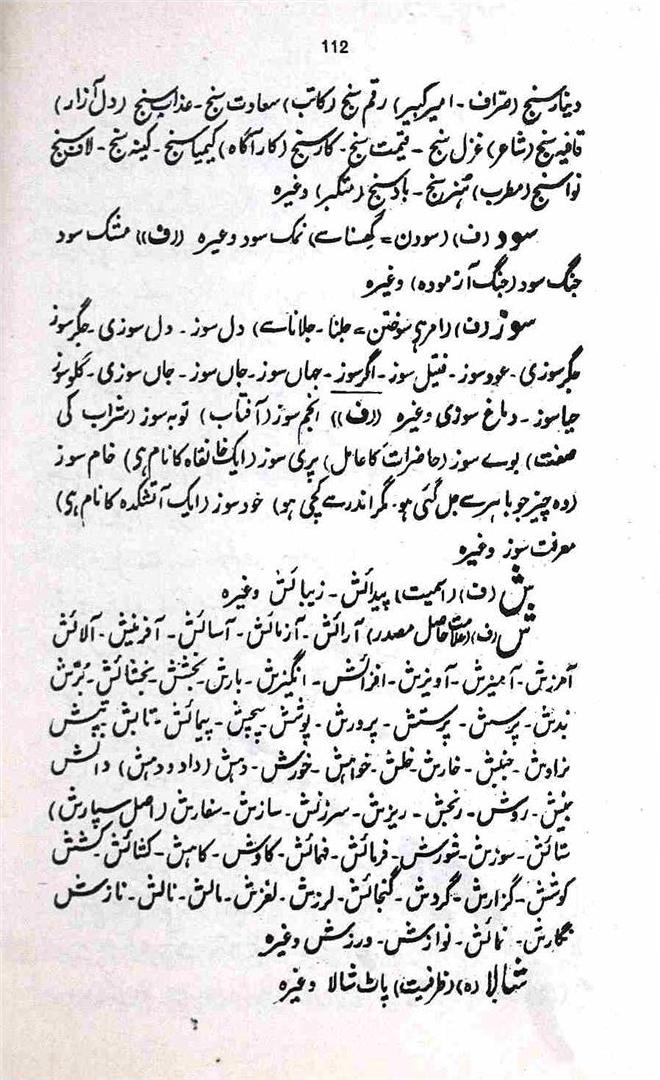 112
دینار سنج (صراف - امیر کبیر) رقم سنج (کاتب) سعادت سنج - عذاب سنج (دل آزار)
قافیہ سنج (شاعر) غزل سنج - قیمت سنج - کار سنج (کار آگاہ) کیمیا سنج - کینہ سنج - لاف سنج
نوا سنج (مطرب) ہنر سنج - باد سنج (متکبر) وغیرہ
سود (ف) (سودن = گھسنا سے) نمک سود وغیرہ ((ف)) مشک سود
جنگ سود (جنگ آزمودہ) وغیرہ
سوز (ف) (امر ہی سوختن = جلنا - جلانا سے) دل سوز - دل سوزی - جگر سوز
جگر سوزی - عود سوز - فتیل سوز - اگر سوز - جہاں سوز - جاں سوز - جاں سوزی - گلو سوز
حیا سوز - دماغ سوزی وغیرہ ((ف)) انجم سوز (آفتاب) توبہ سوز (شراب کی
صفت) بوے سوز (حاضرات کا عامل) پری سوز (ایک خانقاہ کا نام ہی) خام سوز
(وہ چیز جو باہر سے جل گئی ہو - مگر اندر سے کچی ہو) خود سوز (ایک آتشکدہ کا نام ہی)
معرفت سوز وغیرہ
ش (ف) (اسمیت) پیدائش - زیبائش وغیرہ
ش (ف) (علامت حاصل مصدر) آرائش - آزمائش - آسائش - آفرینش - آلائش
آمرزش - آمیزش - آویزش - افزائش - انگیزش - بارش - بخشش - بخشائش - بُرّش
بندش - پرسش - پرستش - پرورش - پوشش - پیچش - پیمائش - تابش - تپش
تراوش - جنبش - خارش - خلش - خواہش - خورش - دہش (داد و دہش) دانش
بینش - روش - رنجش - ریزش - سرزنش - سازش - سفارش (اصل سپارش)
ستائش - سوزش - شورش - فرمائش - فہمائش - کاوش - کاہش - کشائش - کشش
کوشش - گزارش - گردش - گنجائش - لرزش - لغزش - مالش - نالش - نازش
نگارش - نمائش - نوازش - ورزش وغیرہ
شالا (ہ) (ظرفیت) پاٹ شالا وغیرہ